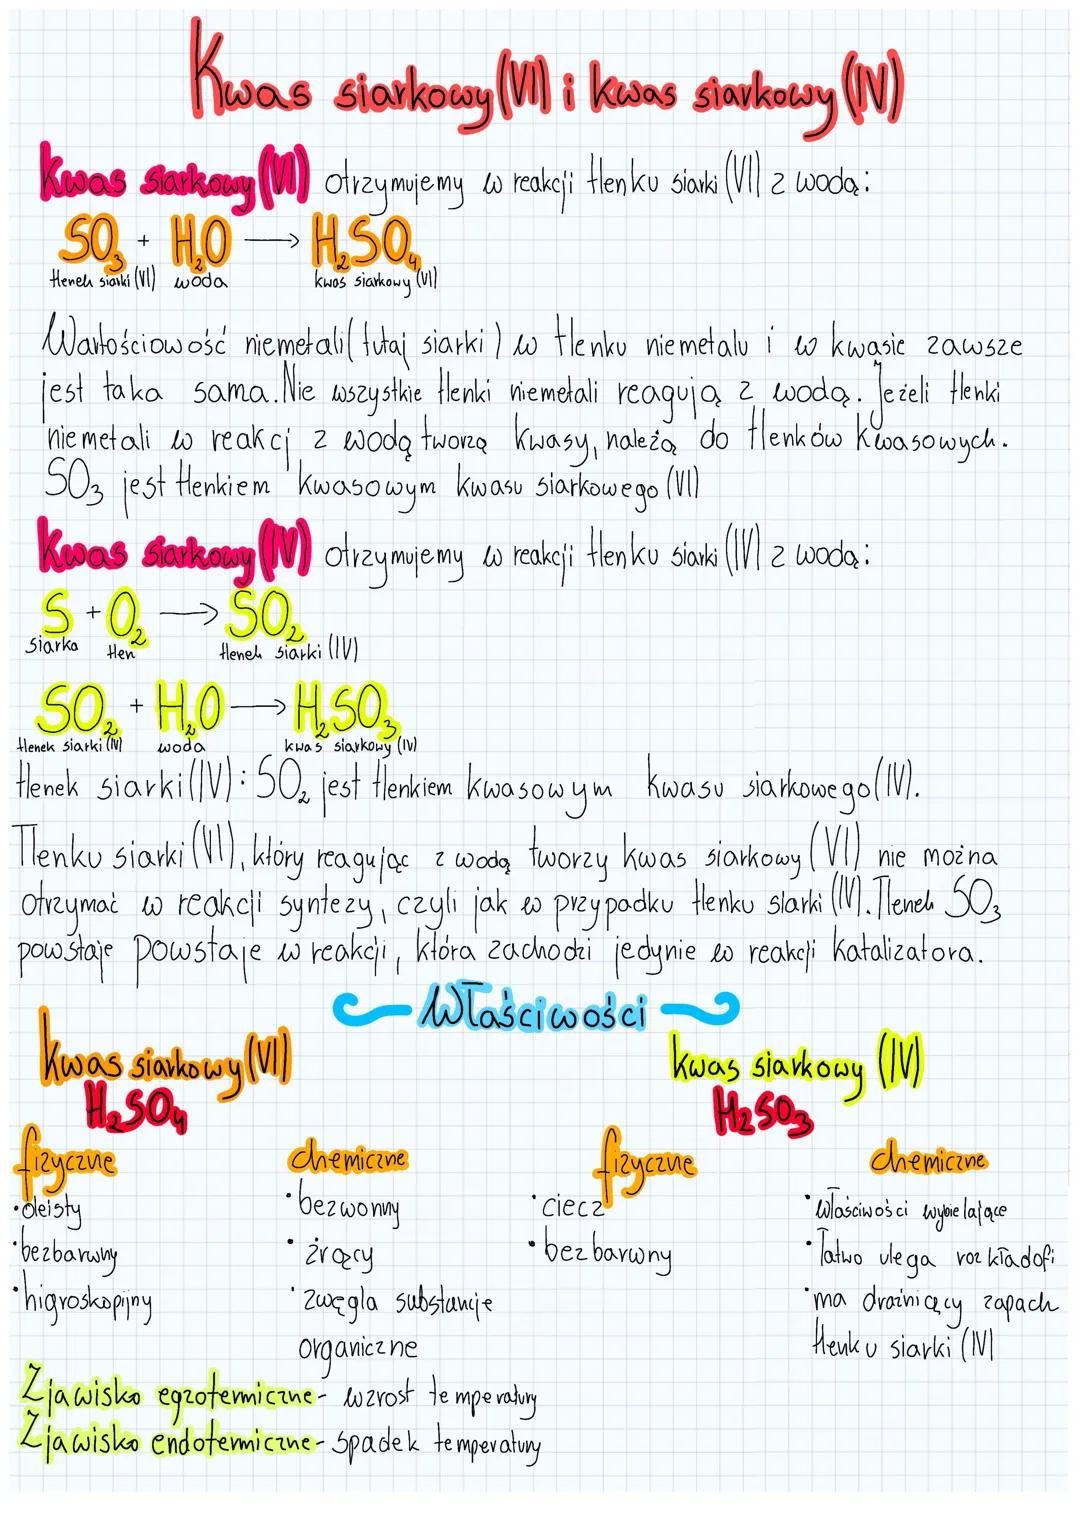 Kwas siarkowy (VI) i kwas siarkowy (IV)
Kwas siarkowy (VI) otrzymujemy w reakcji tlenku siarki (VI) z wodą:
SO₃ + H₂O → H₂SO₄
tlenek siarki (VI) woda kwas siarkowy (VI)
Wartościowość niemetali (tutaj siarki) w tlenku niemetalu i w kwasie zawsze
jest taka sama. Nie wszystkie tlenki niemetali reagują z wodą. Jeżeli tlenki
niemetali w reakcj z wodą tworzą kwasy, należą do tlenków kwasowych.
SO₃ jest tlenkiem kwasowym kwasu siarkowego (VI)
Kwas siarkowy (IV) otrzymujemy w reakcji tlenku siarki (IV) z wodą:
S + O₂ → SO₂
siarka tlen tlenek siarki (IV)
SO₂ + H₂O → H₂SO₃
tlenek siarki (IV) woda kwas siarkowy (IV)
tlenek siarki (IV): SO₂ jest tlenkiem kwasowym kwasu siarkowego (IV).
Tlenku siarki (VI), który reagując z wodą tworzy kwas siarkowy (VI) nie można
otrzymać w reakcji syntezy, czyli jak w przypadku tlenku siarki (IV). Tlenek SO₃
powstaje powstaje w reakcji, która zachodzi jedynie w reakcji katalizatora.
Właściwości
kwas siarkowy (VI) kwas siarkowy (IV)
H₂SO₄ H₂SO₃
fizyczne chemiczne fizyczne chemiczne
• oleisty • bezwonny • ciecz • właściwości wybielające
• bezbarwny • żrący • bezbarwny • łatwo ulega rozkładofi
• higroskopijny • zwęgla substancje • ma drażniący zapach
organiczne tlenku siarki (IV)
Zjawisko egzotermiczne - wzrost temperatury
Zjawisko endotermiczne - spadek temperatury